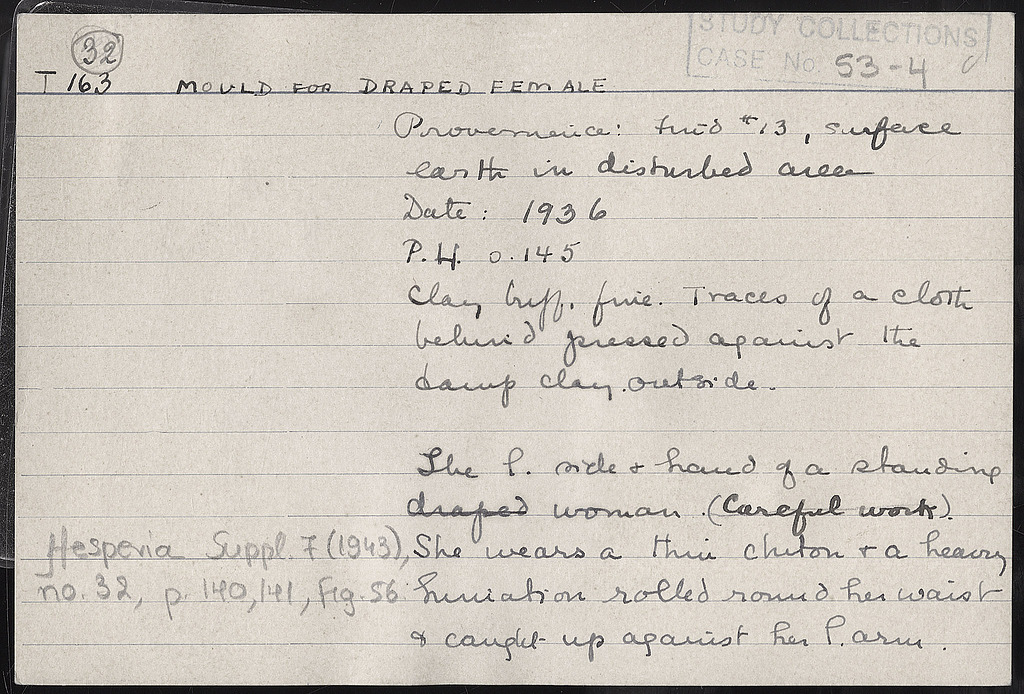 32
STUDY COLLECTIONS
CASE No 53-4
T 163 MOULD FOR DRAPED FEMALE
Provenience: find #13, surface
earth in disturbed area
Date: 1936
P.H. 0.145
Clay buff, fine. Traces of a cloth
behind pressed against the
damp clay outside.
The l. side + hand of a standing
draped woman. (Careful work).
She wears a thin chiton + a heavy
himation rolled round her waist
& caught up against her l. arm.
Hesperia Suppl. 7 (1943),
no. 32, p. 140, 141, fig. 56